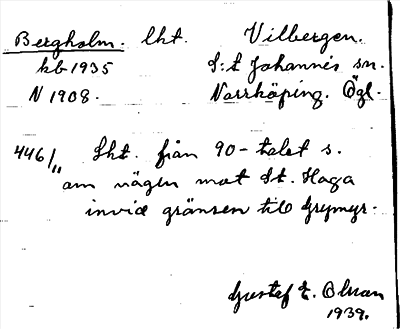 Bergholm. lht. Vilbergen.
kb 1935 S:t Johannis sn.
N 1908. Norrköping. Ögl.
446/11 Lht. från 90-talet s.
om vägen mot St. Haga
invid gränsen till Grymyr.
Gustaf E. Olsson
1939.